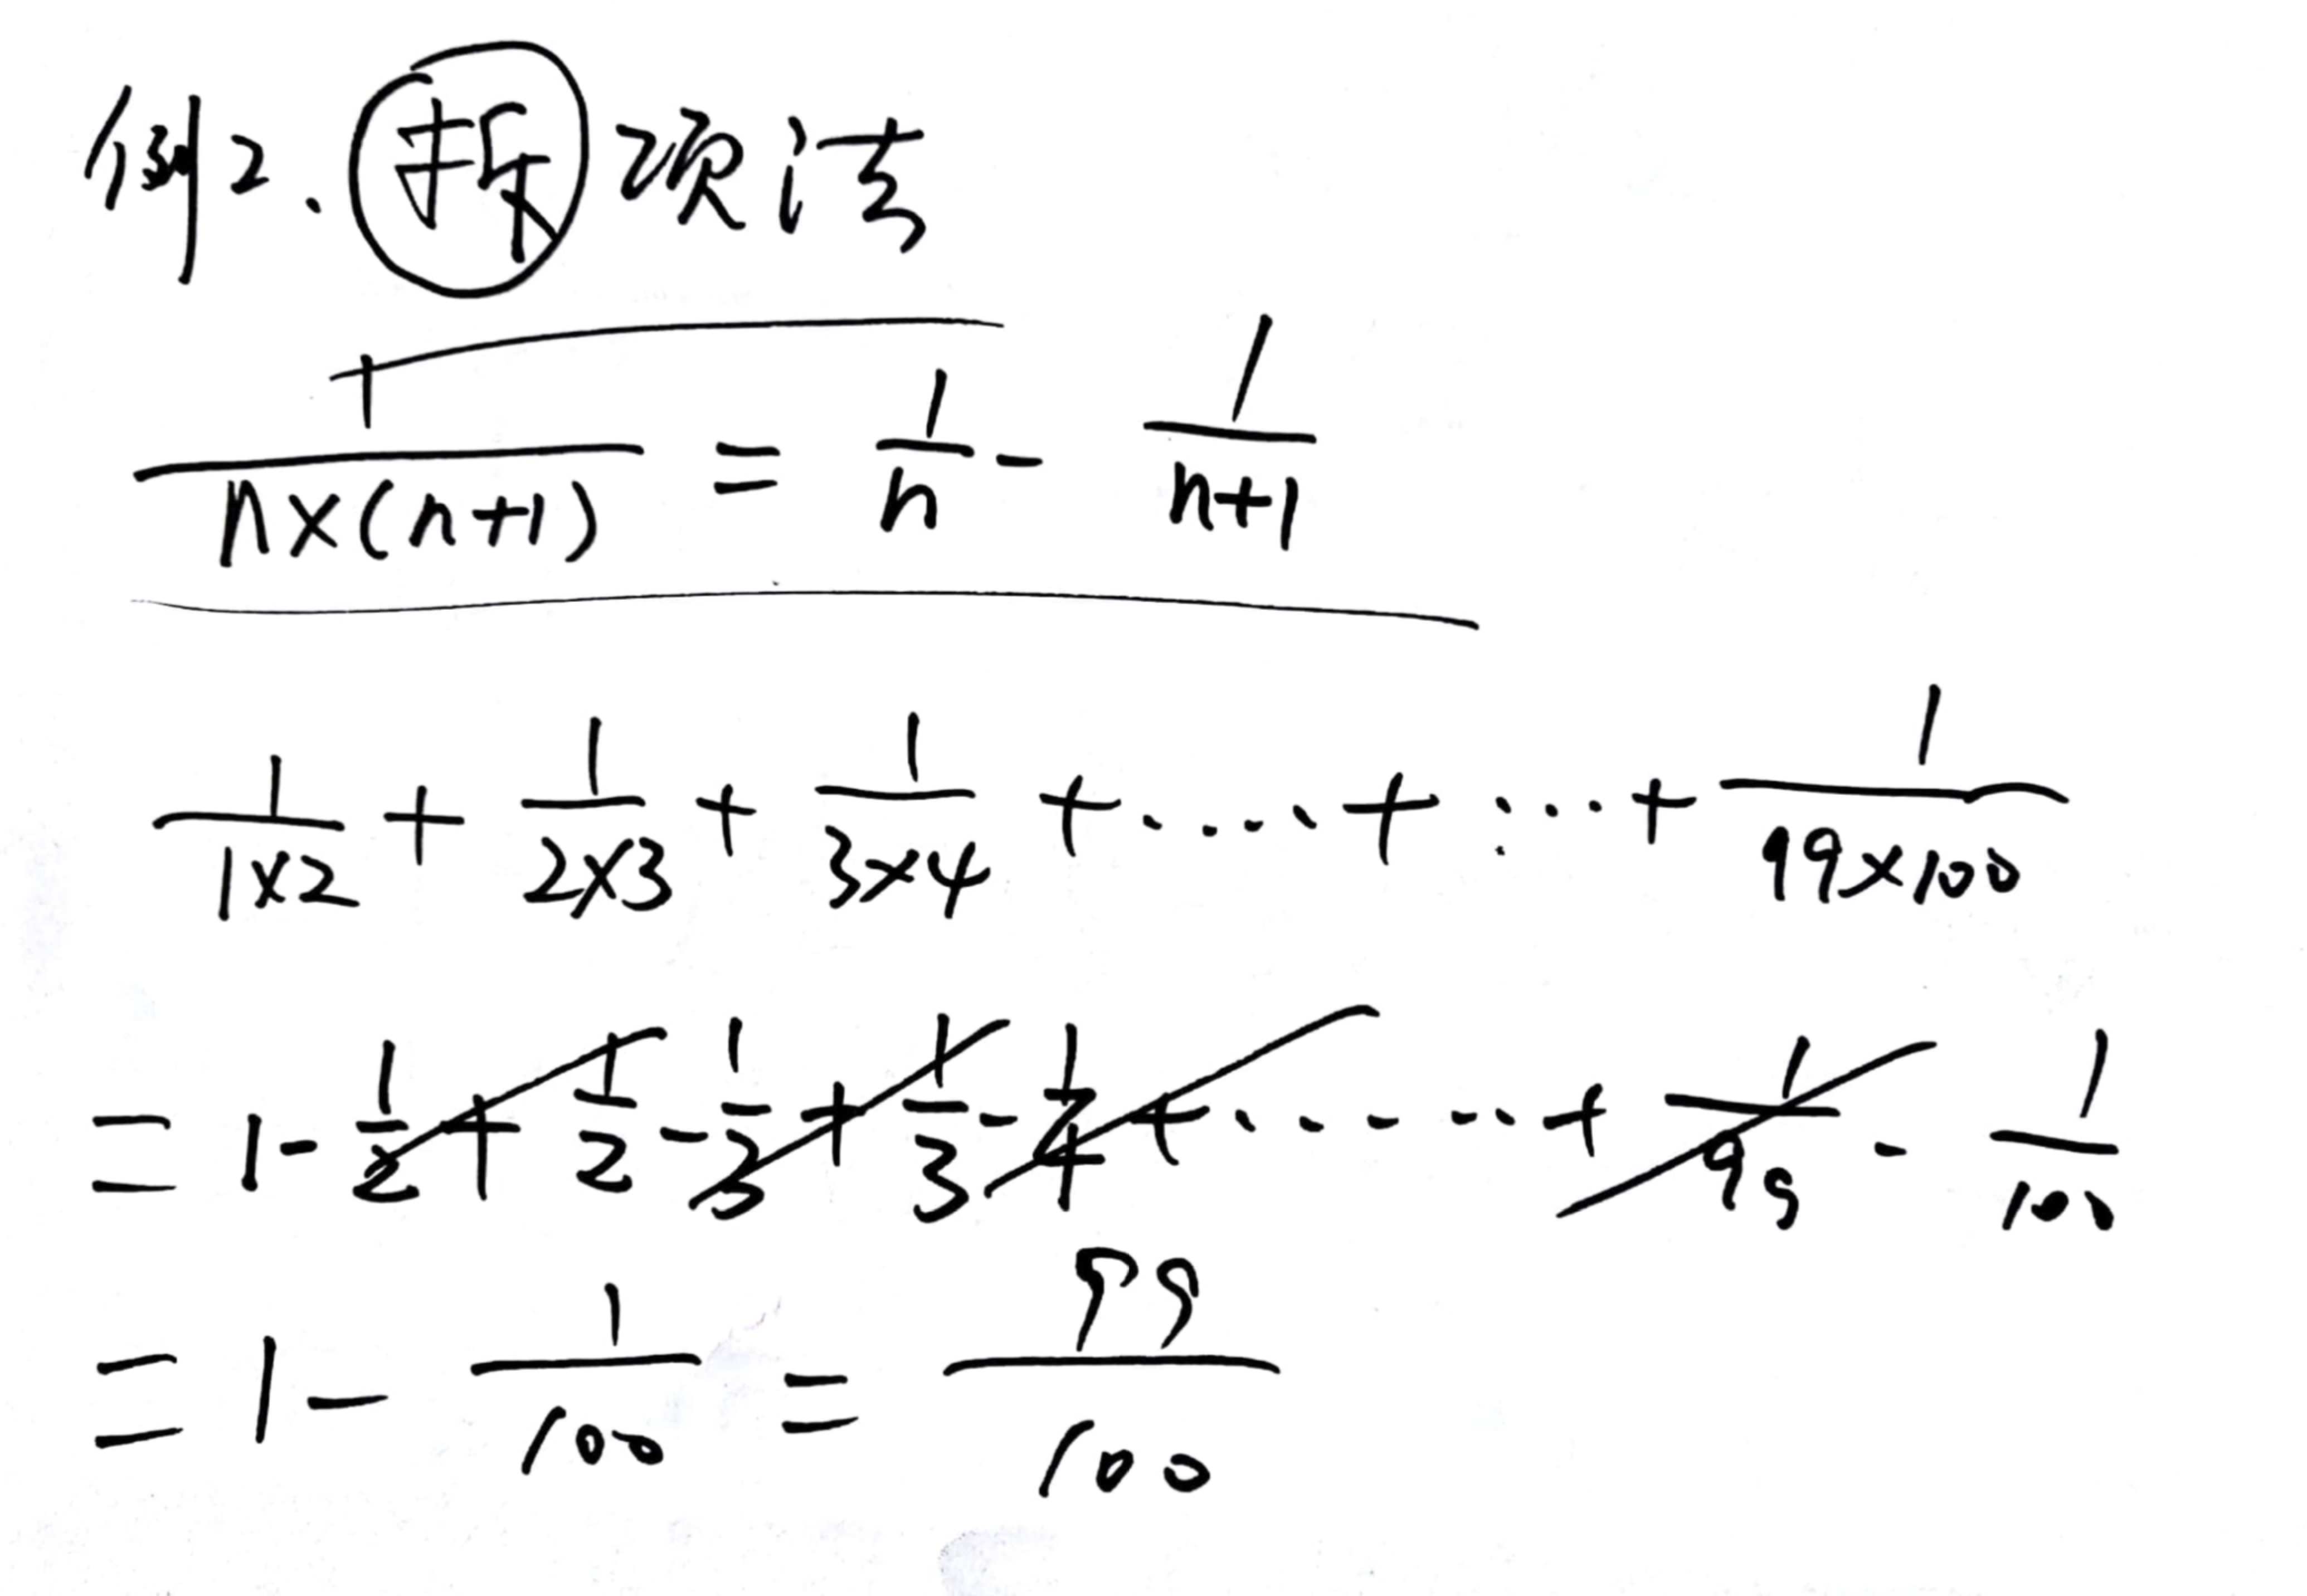 例2、拆项法
1/(n×(n+1)) = 1/n - 1/(n+1)
1/(1×2) + 1/(2×3) + 1/(3×4) + ..... + :... + 1/(99×100)
= 1 - 1/2 + 1/2 - 1/3 + 1/3 - 1/4 + ....... + 1/99 - 1/100
= 1 - 1/100 = 99/100